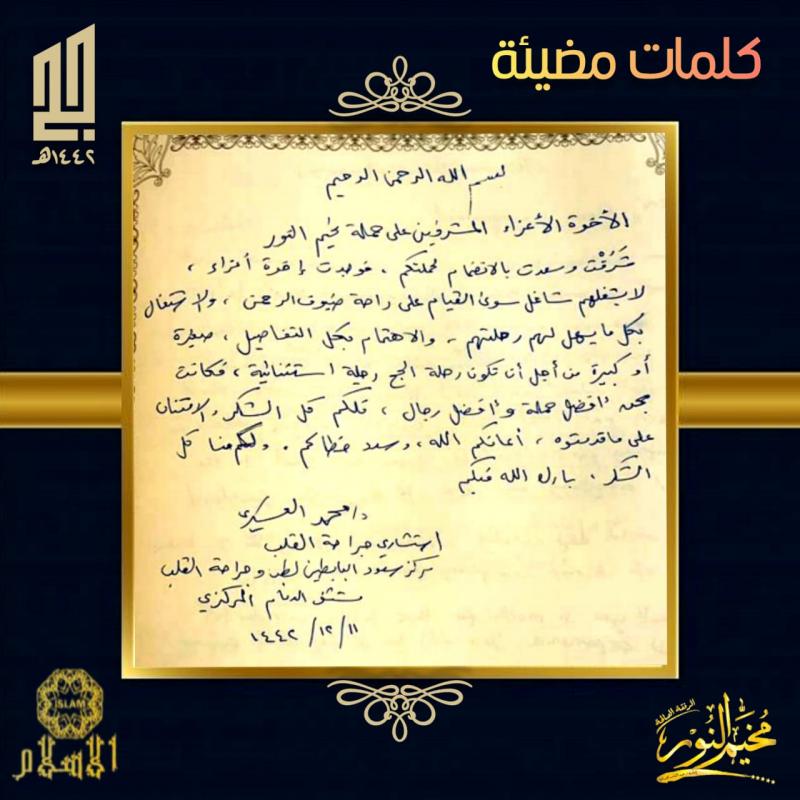 كلمات مضيئة
١٤٤٢هـ
بسم الله الرحمن الرحيم
الأخوة الأعزاء المشرفين على حملة مخيم النور
شَرُفْت وسعدت بالانضمام لحملتكم . فوجدت إخوة أعزاء ،
لا يشغلهم شاغل سوى القيام على راحة ضيوف الرحمن ، والاشتغال
بكل ما يسهل لهم رحلتهم . والاهتمام بكل التفاصيل ، صغيرة
أو كبيرة من أجل أن تكون رحلة الحج رحلة استثنائية ، فكانت
بحق أفضل حملة وأفضل رجال ، فلكم كل الشكر والامتنان
على ما قدمتوه ، أعانكم الله ، وسدد خطاكم . ولكم منا كل
الشكر . بارك الله فيكم
د/ محمد العسكري
إستشاري جراحة القلب
مركز سعود البابطين لطب وجراحة القلب
الدمام المركزي
١٤٤٢/١٢/١١
ISLAM
الاسلام
مخيم النور